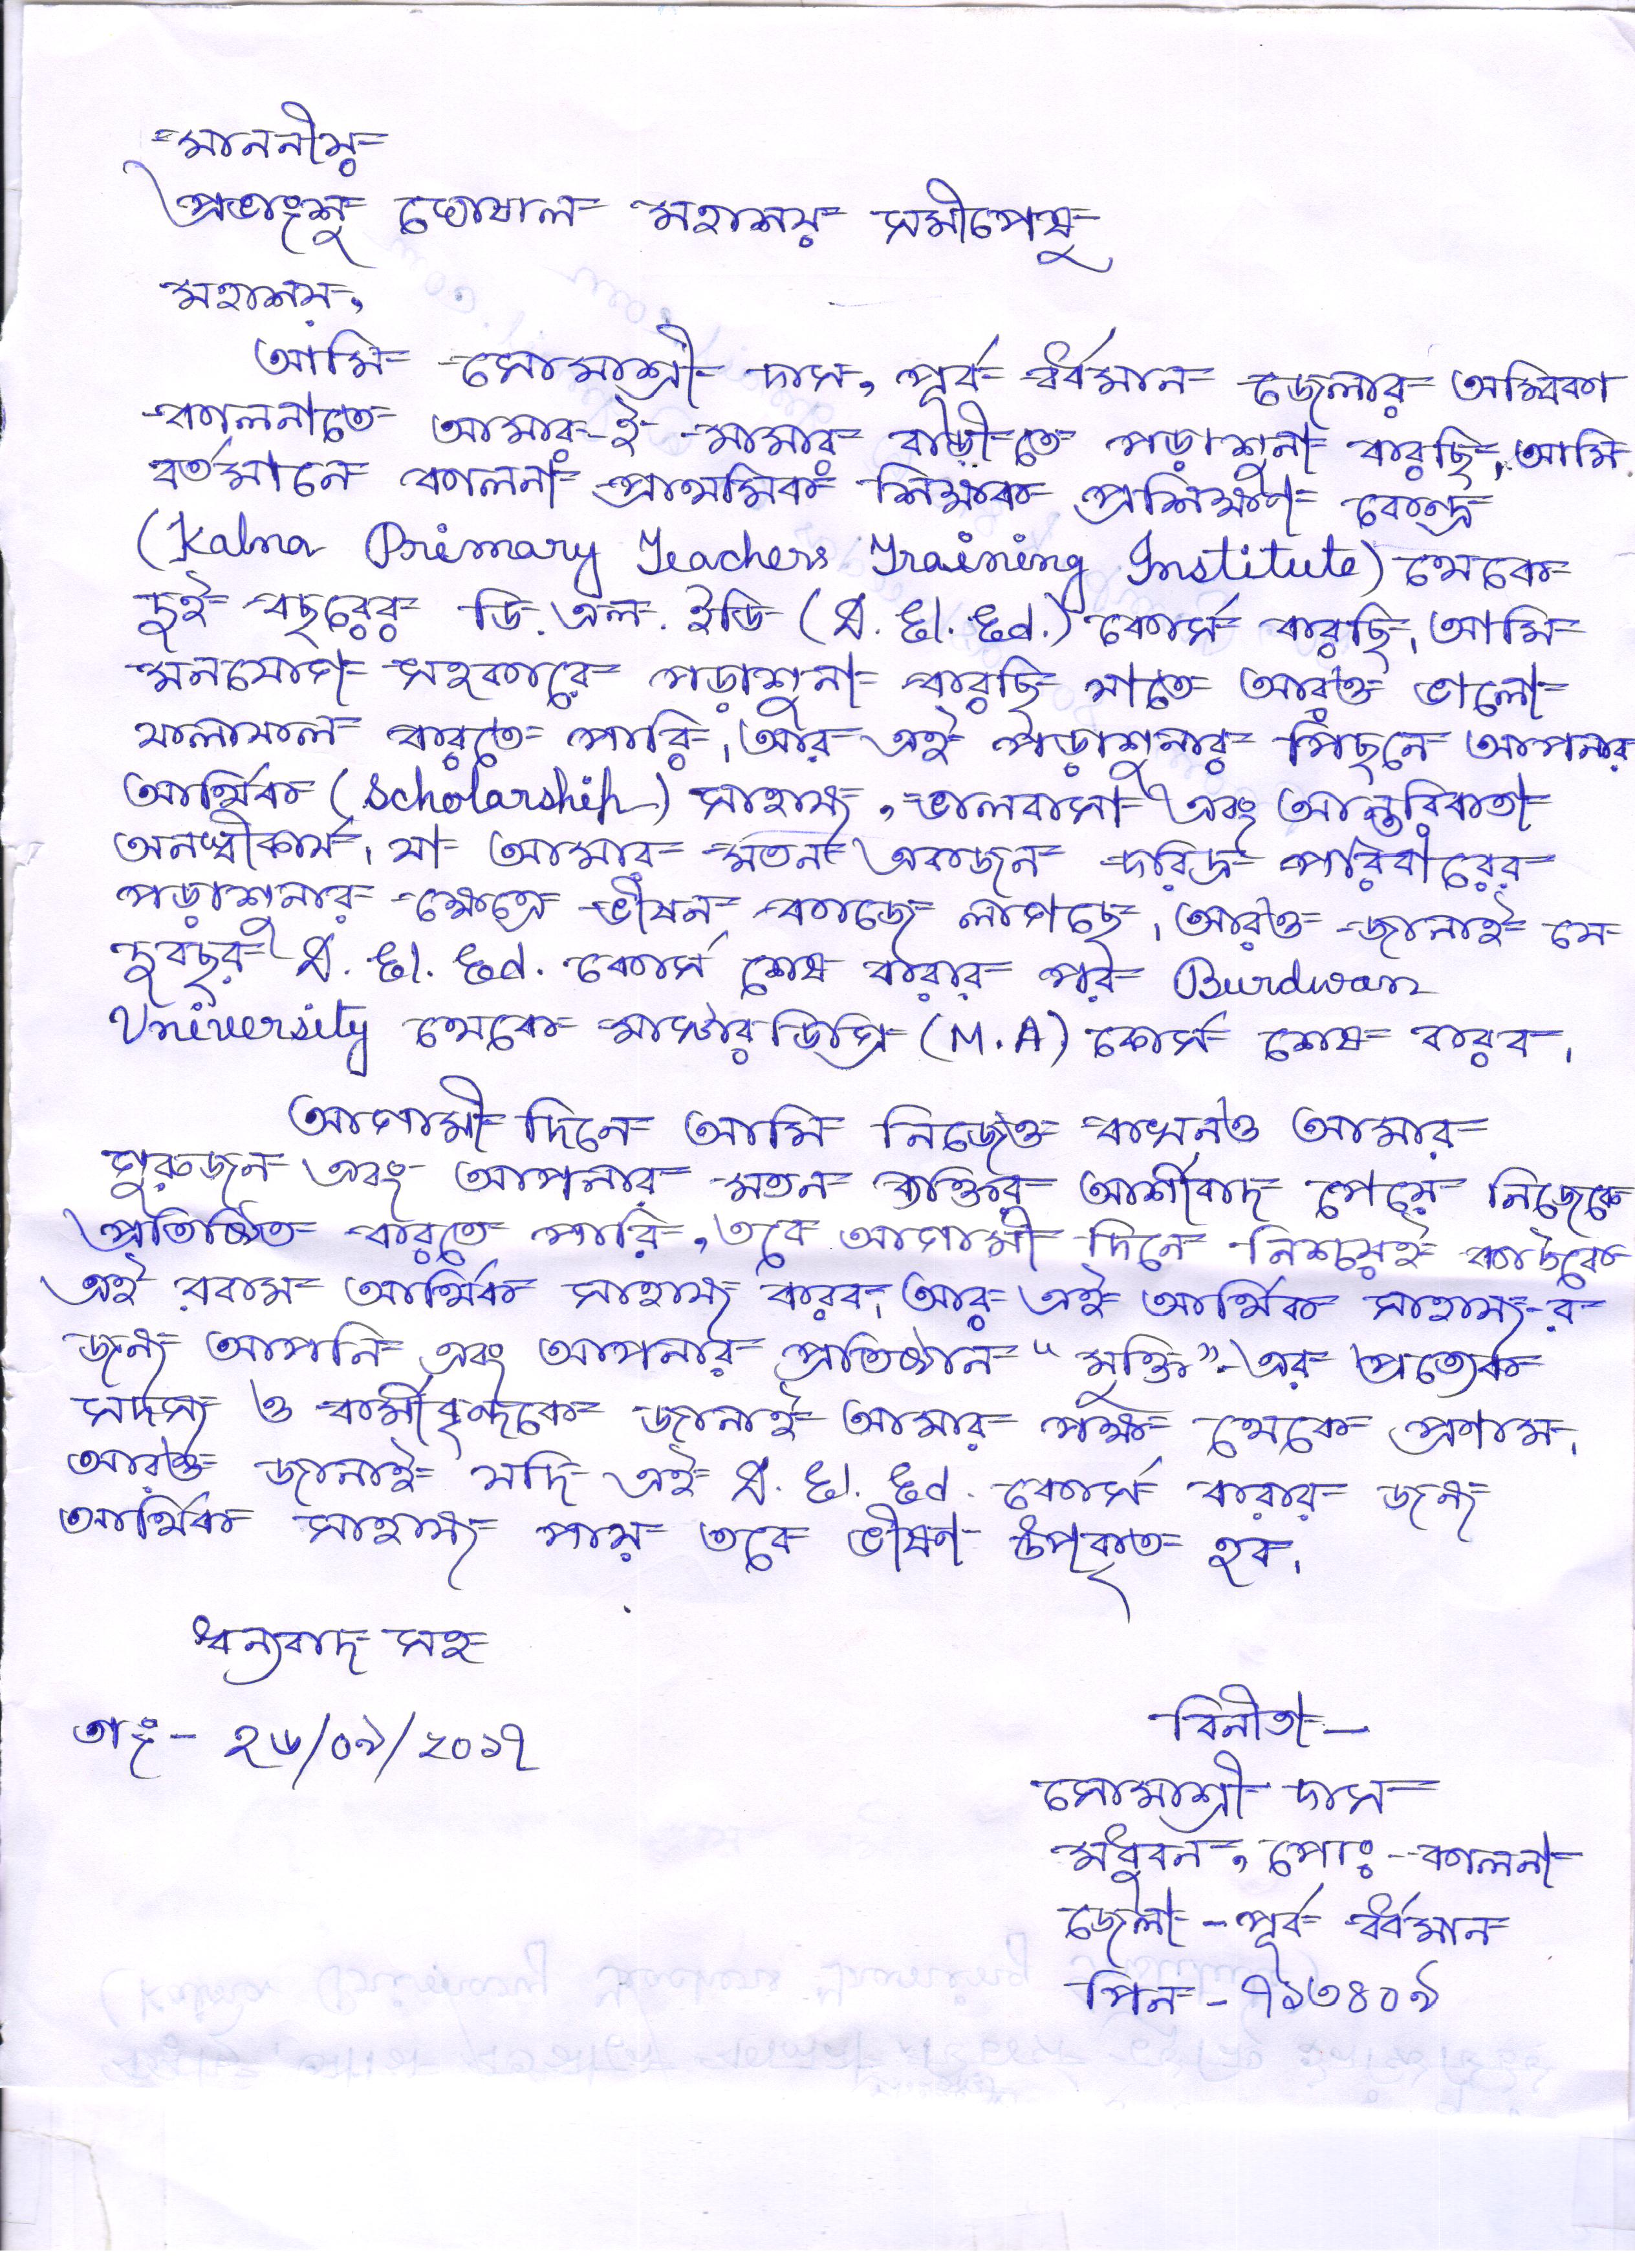 মাননীয়
প্রভাংশু ঘোষাল মহাশয় সমীপেষু
মহাশয়,
আমি সোমাশ্রী দাস, পূর্ব বর্ধমান জেলার অম্বিকা
কালনাতে আমার-ই মামার বাড়ীতে পড়াশুনা করছি। আমি
বর্তমানে কালনা প্রাথমিক শিক্ষক প্রশিক্ষণ কেন্দ্র
(Kalna Primary Teachers Training Institute) থেকে
দুই বছরের ডি. এল. ইডি (D. El. Ed.) কোর্স করছি। আমি
মনযোগ সহকারে পড়াশুনা করছি যাতে আরও ভালো
ফলাফল করতে পারি। আর এই পড়াশুনার পিছনে আপনার
আর্থিক (Scholarship) সাহায্য, ভালবাসা এবং আন্তরিকতা
অনস্বীকার্য। যা আমার মতন একজন দরিদ্র পরিবারের
পড়াশুনার ক্ষেত্রে ভীষন কাজে লাগছে। আরও জানাই যে
দুবছর D. El. Ed. কোর্স শেষ করার পর Burdwan
University থেকে মাস্টার ডিগ্রি (M.A) কোর্স শেষ করব।
আগামী দিনে আমি নিজেও কখনও আমার
গুরুজন এবং আপনার মতন ব্যক্তির আর্শীবাদ পেয়ে নিজেকে
প্রতিষ্ঠিত করতে পারি, তবে আগামী দিনে নিশ্চয়ই কাউকে
এই রকাম আর্থিক সাহায্য করব। আর এই আর্থিক সাহায্য-র
জন্য আপনি এবং আপনার প্রতিষ্ঠান "মুক্তি"-এর প্রত্যেক
সদস্য ও কর্মীবৃন্দকে জানাই আমার পক্ষ থেকে প্রণাম।
আরও জানাই যদি এই D. El. Ed. কোর্স করার জন্য
আর্থিক সাহায্য পায় তবে ভীষণ উপকৃত হব।
ধন্যবাদ সহ
তাং- ২৬/০৯/২০১৭
বিনীতা—
সোমাশ্রী দাস
মধুবন, পোঃ-কালনা
জেলা-পূর্ব বর্ধমান
পিন-৭১৩৪০৯